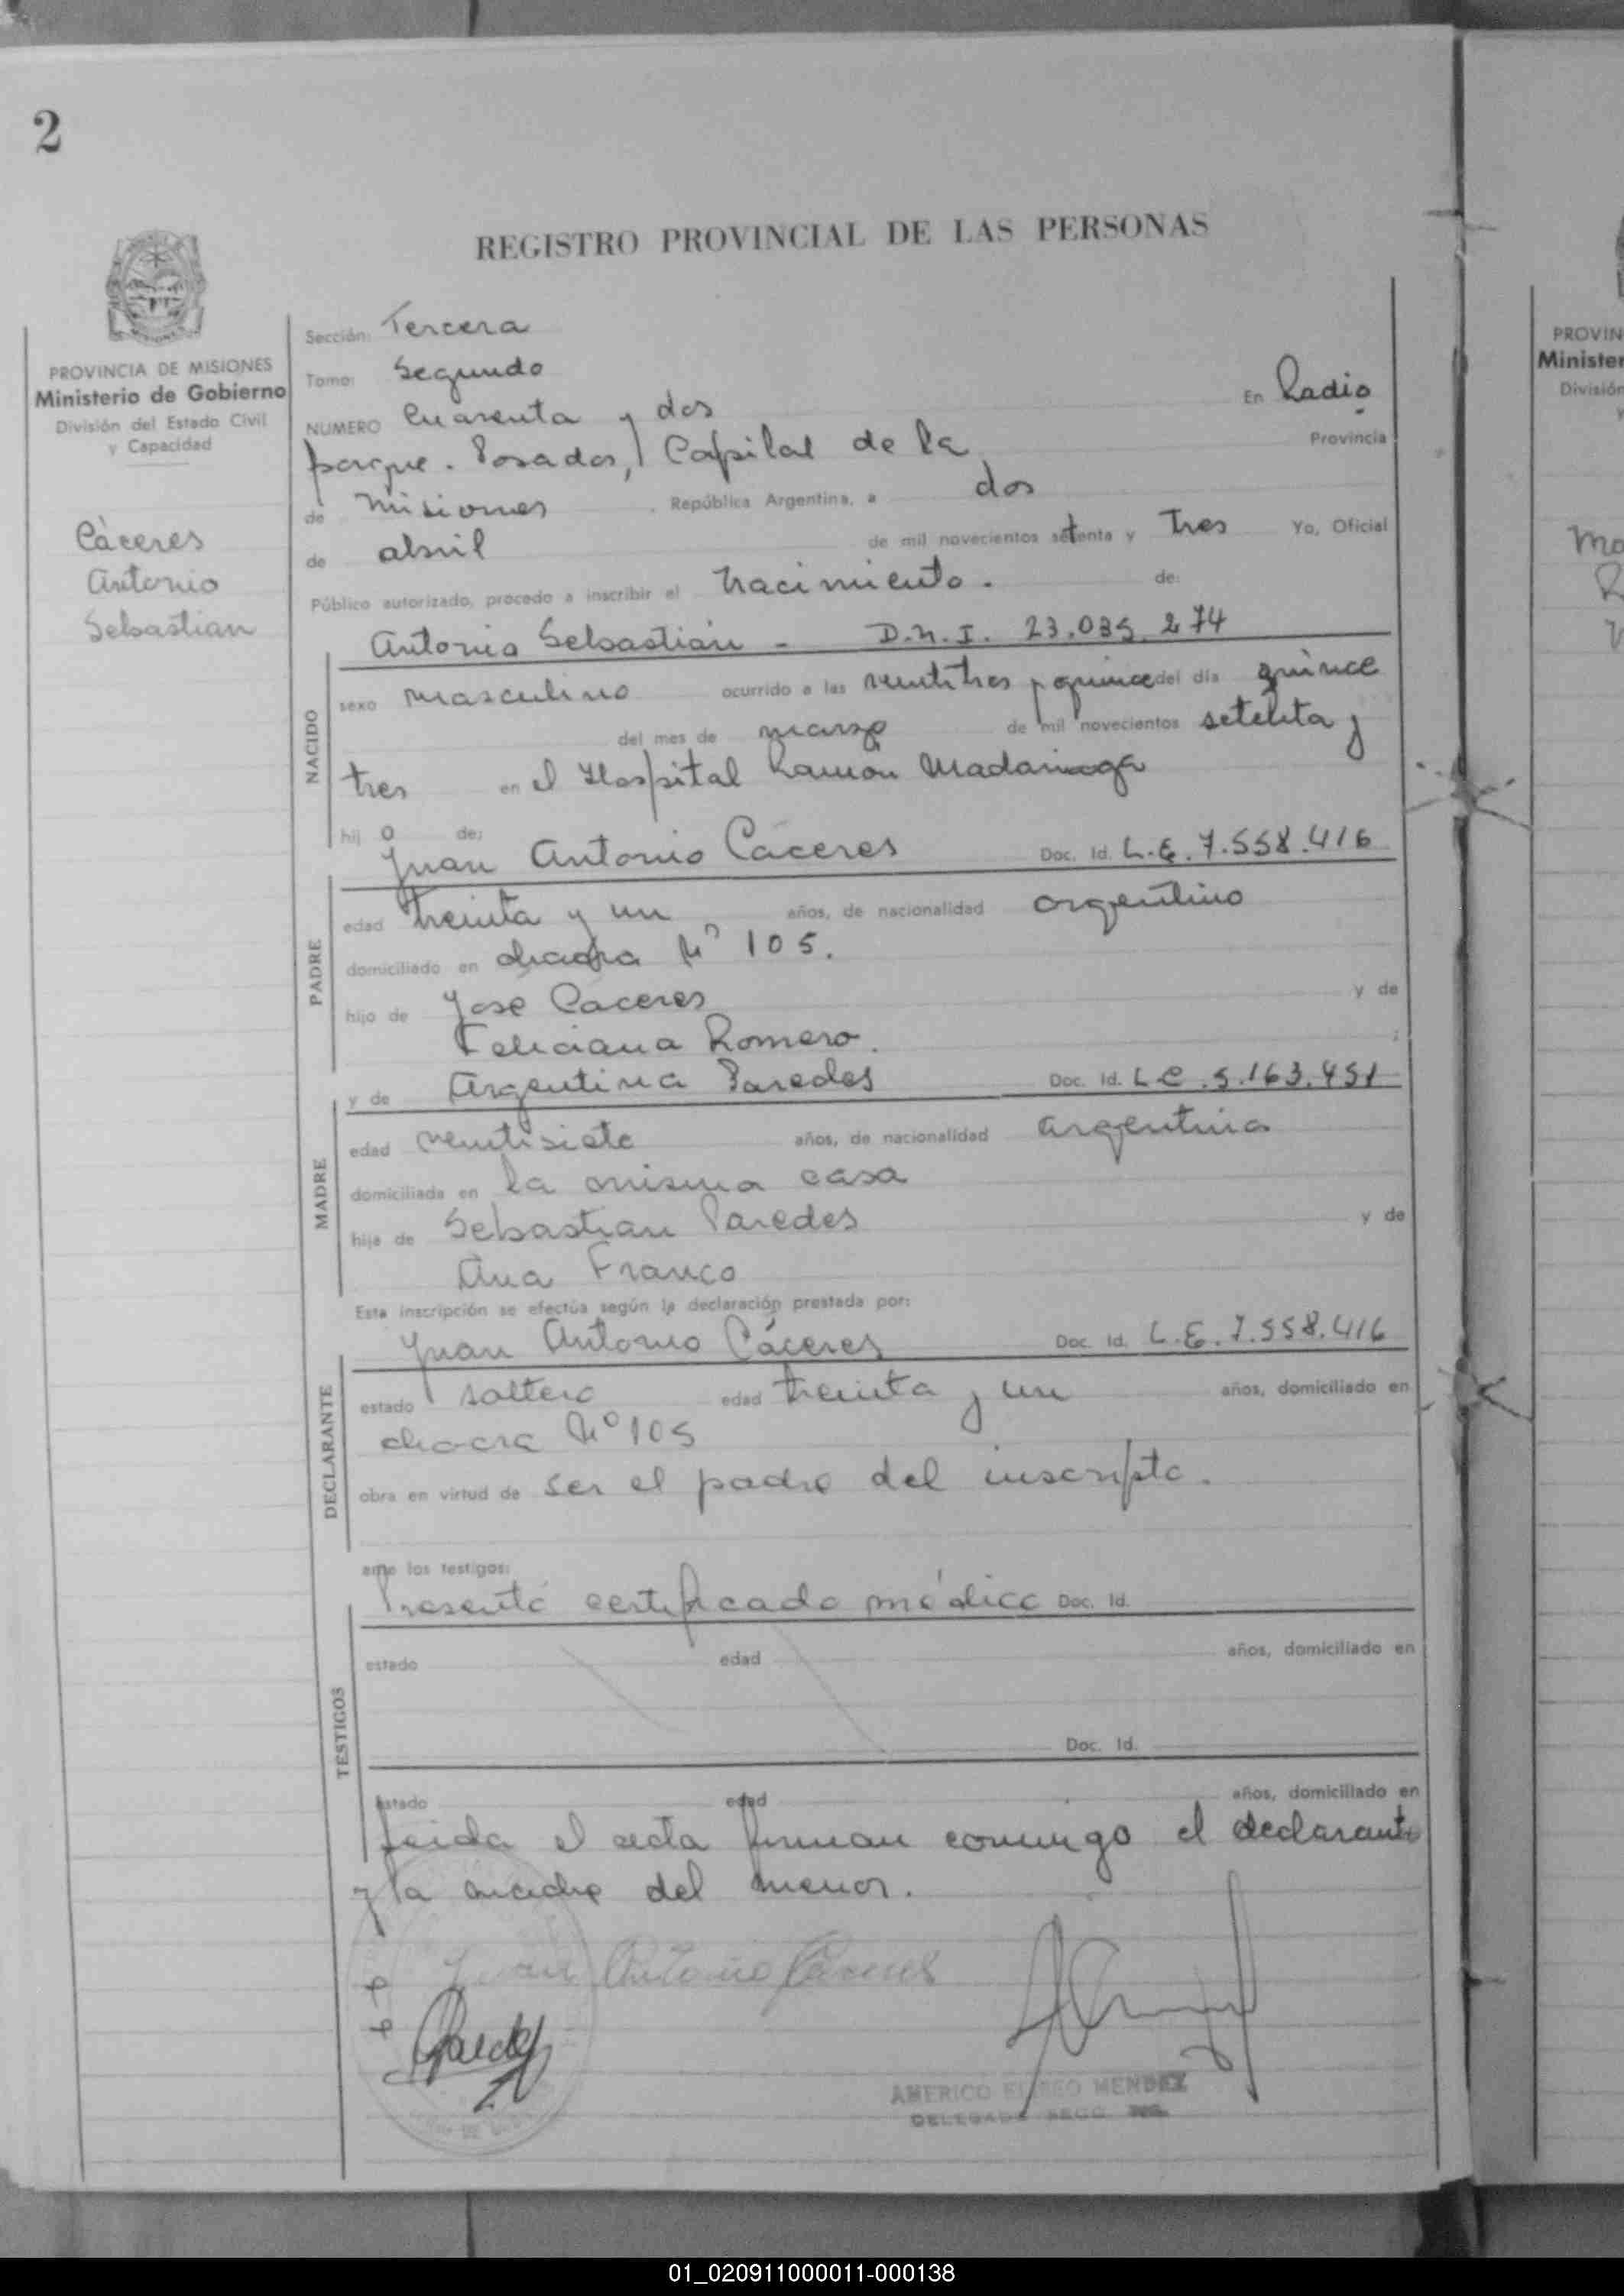 2
REGISTRO PROVINCIAL DE LAS PERSONAS
PROVINCIA DE MISIONES
Ministerio de Gobierno
División del Estado Civil
y Capacidad
Càceres
Antonio
Sebastian
Sección: Tercera
Tomo: Segundo
NUMERO Cuarenta y dos En Radio
parque. Posadas, Capital de la Provincia
de Misiones, República Argentina, a dos
de abril de mil novecientos setenta y tres Yo, Oficial
Público autorizado, procedo a inscribir el nacimiento. de:
NACIDO
Antonio Sebastián - D.N.I. 23.035.274
sexo masculino ocurrido a las veintitres y quince del día quince
del mes de marzo de mil novecientos setenta y
tres en el Hospital Ramón Madariaga
hij o de:
PADRE
Juan Antonio Cáceres Doc. Id. L.E. 7.558.416
edad treinta y un años, de nacionalidad argentino
domiciliado en chacra Nº 105.
hijo de Jose Caceres y de
Feliciana Romero.;
MADRE
y de Argentina Paredes Doc. Id. L C .5.163.451
edad veintisiete años, de nacionalidad argentina
domiciliada en la misma casa
hija de Sebastian Paredes y de
Ana Franco
Esta inscripción se efectúa según la declaración prestada por:
DECLARANTE
Juan Antonio Cáceres Doc. Id. L.E. 7.558.416
estado soltero edad treinta y un años, domiciliado en
chacra Nº 105
obra en virtud de ser el padre del inscripto.
ante los testigos:
TESTIGOS
Presentó certificado médico Doc. Id.
estado edad años, domiciliado en
Doc. Id.
estado edad años, domiciliado en
Leida el acta firman conmigo el declarante
y la madre del menor.
Juan Antonio Cáceres
AMERICO ELISEO MENDEZ
DELEGADO SECC
PROVIN
Minister
División
y
Mo
R
01_020911000011-000138